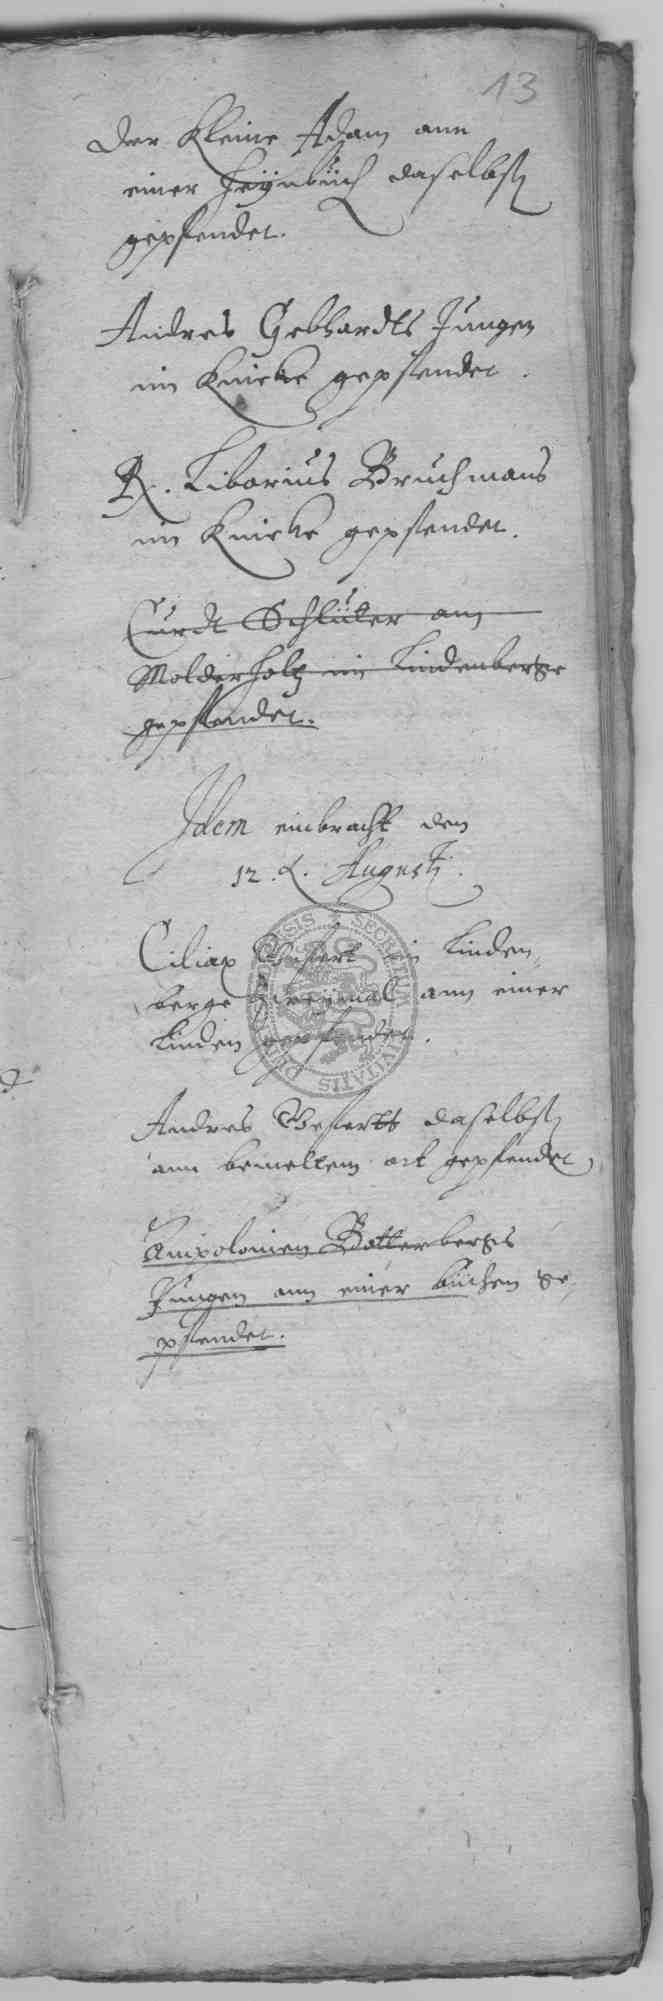 13
Der Kleine Adam ann
einer Heÿnbüch daselbst
gepfendet.
Andres Gebhardts Jungen
im Knicke gepfendet.
R. Liborius Bruchmans
im Knicke gepfendet.
Curdt Schlüter am
Molderholtz im Lindenberge
gepfendet.
Idem einbracht den
12. Augusti.
Ciliax im Linden,
berge Zweÿmal ann einer
Linden gepfendet.
Andres daselbst
ann bemeltem ort gepfendet
Botterbergs
Jungen ann einer büchen ge,
pfendet.
SECRETUM
CIVITATIS